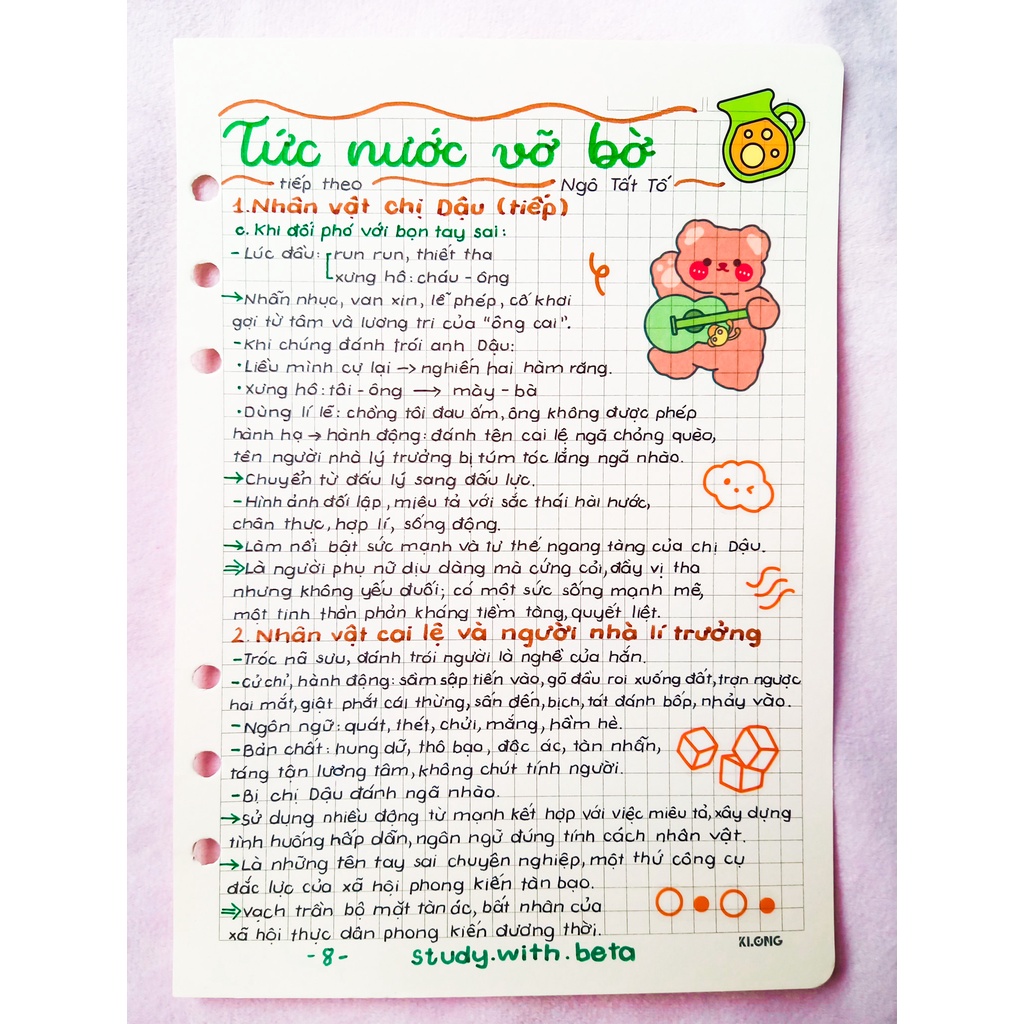 Tức nước vỡ bờ
tiếp theo Ngô Tất Tố
1.Nhân vật chị Dậu (tiếp)
c. Khi đối phó với bọn tay sai:
- Lúc đầu: run run, thiết tha
xưng hô: cháu - ông
→Nhẫn nhục, van xin, lễ phép, cố khơi
gợi từ tâm và lương tri của "ông cai".
-Khi chúng đánh trói anh Dậu:
•Liều mình cự lại → nghiến hai hàm răng.
•Xưng hô: tôi - ông → mày - bà
•Dùng lí lẽ: chồng tôi đau ốm, ông không được phép
hành hạ → hành động: đánh tên cai lệ ngã chỏng quèo,
tên người nhà lý trưởng bị túm tóc lẳng ngã nhào.
→Chuyển từ đấu lý sang đấu lực.
-Hình ảnh đối lập, miêu tả với sắc thái hài hước,
chân thực, hợp lí, sống động.
→Làm nổi bật sức mạnh và tư thế ngang tàng của chị Dậu.
⇒Là người phụ nữ dịu dàng mà cứng cỏi, đầy vị tha
nhưng không yếu đuối; có một sức sống mạnh mẽ,
một tinh thần phản kháng tiềm tàng, quyết liệt.
2. Nhân vật cai lệ và người nhà lí trưởng
-Tróc nã sưu, đánh trói người là nghề của hắn.
-Cử chỉ, hành động: sầm sập tiến vào, gõ đầu roi xuống đất, trợn ngược
hai mắt, giật phắt cái thừng, sấn đến, bịch, tát đánh bốp, nhảy vào.
-Ngôn ngữ: quát, thét, chửi, mắng, hầm hè.
-Bản chất: hung dữ, thô bạo, độc ác, tàn nhẫn,
táng tận lương tâm, không chút tính người.
-Bị chị Dậu đánh ngã nhào.
→Sử dụng nhiều động từ mạnh kết hợp với việc miêu tả, xây dựng
tình huống hấp dẫn, ngôn ngữ đúng tính cách nhân vật.
→Là những tên tay sai chuyên nghiệp, một thứ công cụ
đắc lực của xã hội phong kiến tàn bạo.
⇒Vạch trần bộ mặt tàn ác, bất nhân của
xã hội thực dân phong kiến đương thời.
KLONG
-8- study.with.beta